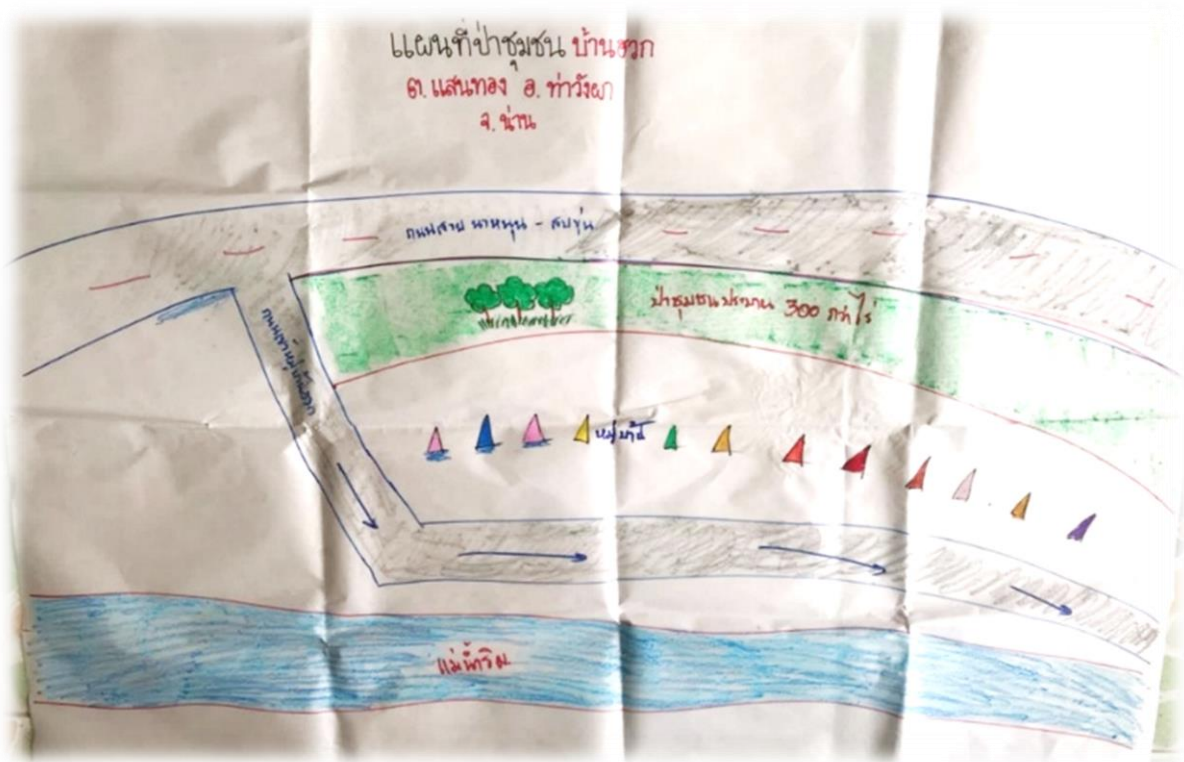 แผนที่ป่าชุมชน บ้านฮวก
ต. แสนทอง อ. ท่าวังผา
จ. น่าน
ถนนสาย นาหนุน - สบขุ่น
ป่าชุมชนประมาณ 300 กว่าไร่
ถนนเข้าหมู่บ้านฮวก
หมู่บ้าน
แม่น้ำริม